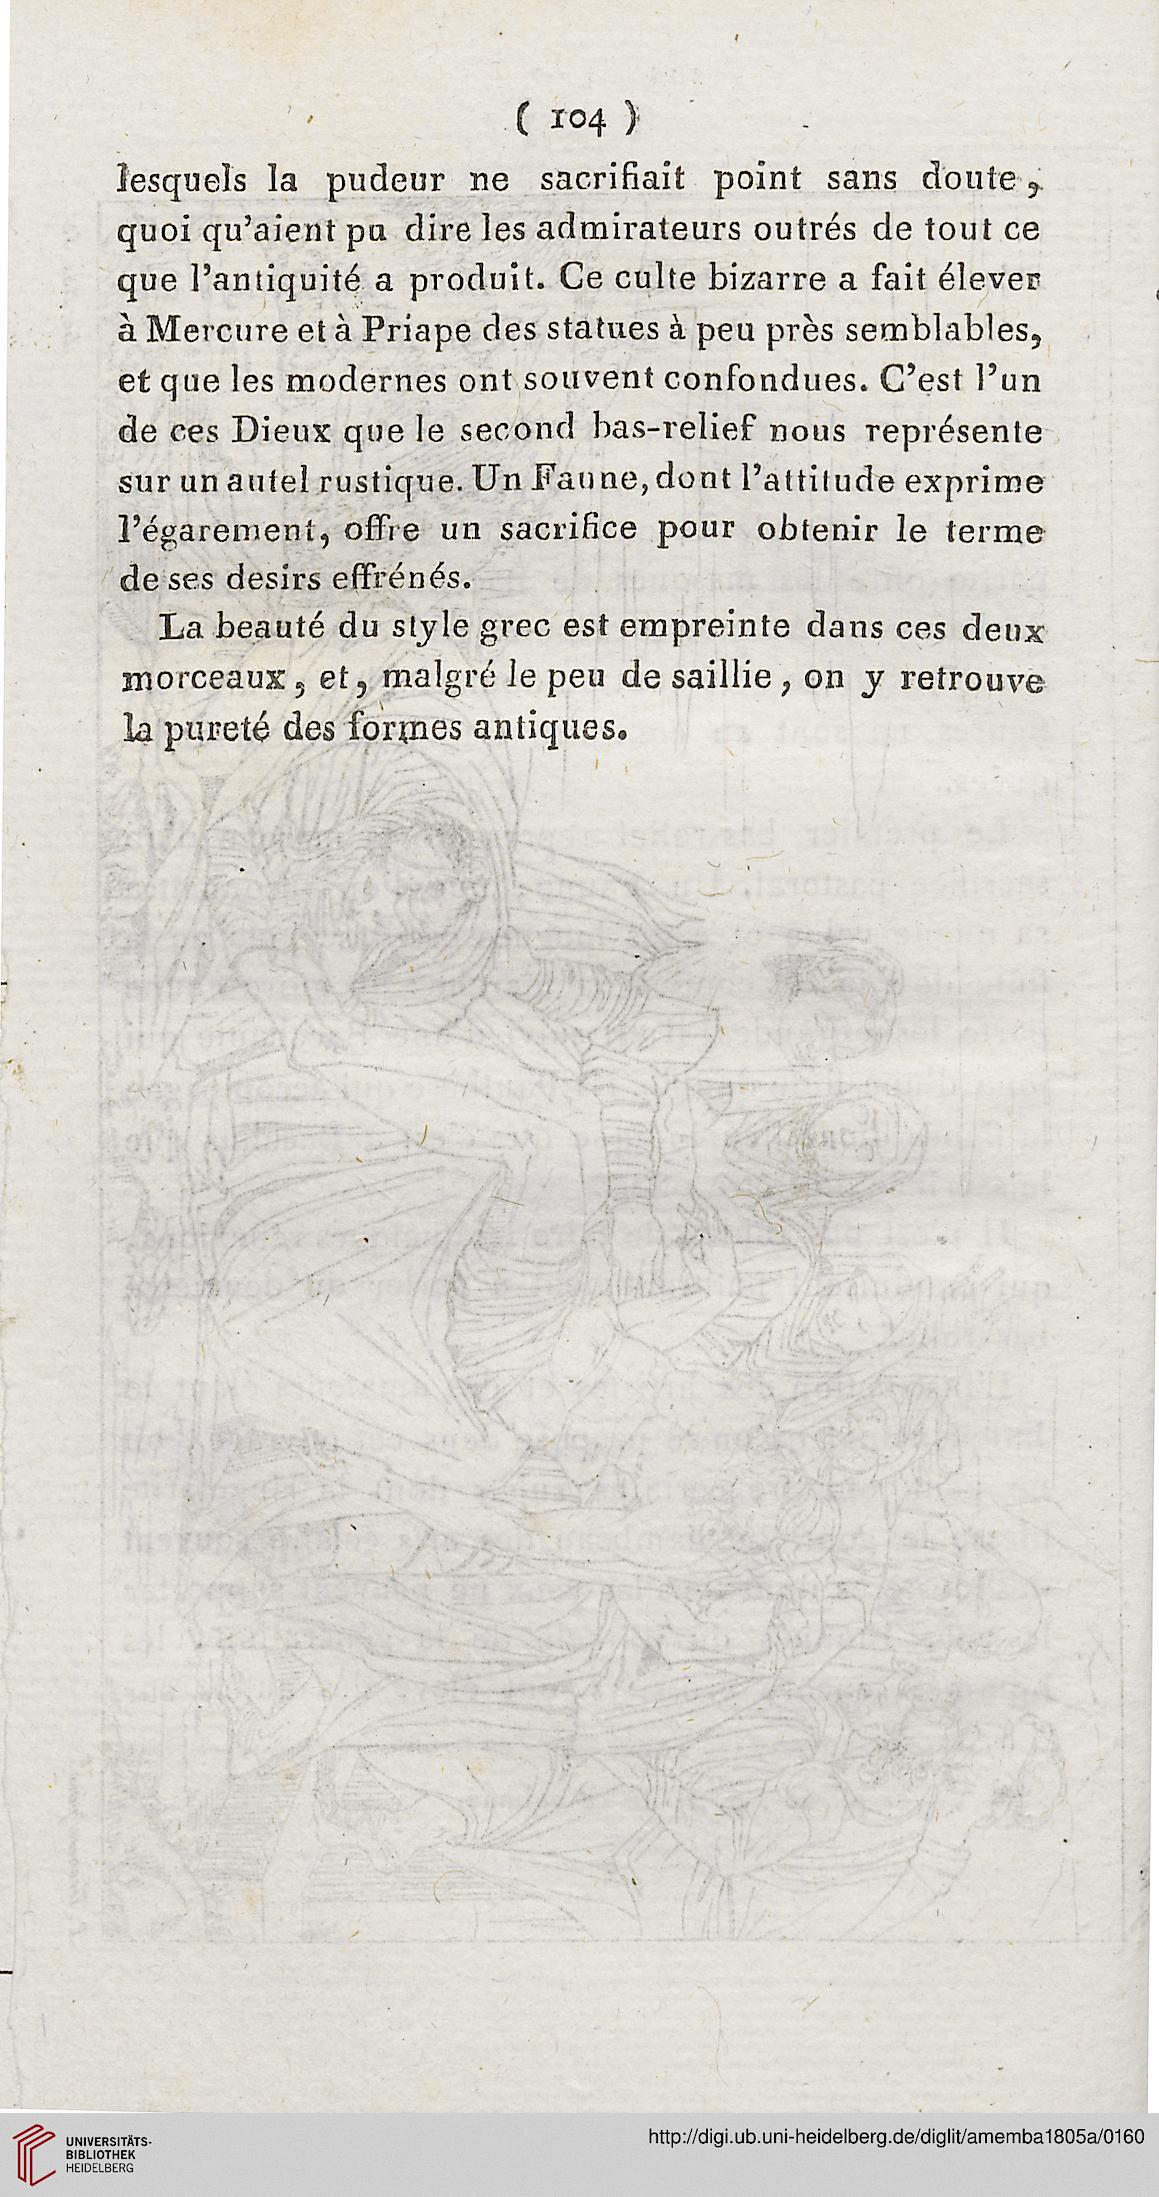 ( 104 )
lesquels la pudeur ne sacrifiait point sans doute,
quoi qu'aient pu dire les admirateurs outrés de tout ce
que l'antiquité a produit. Ce culte bizarre a fait élever
à Mercure et à Priape des statues à peu près semblables,
et que les modernes ont souvent confondues. C'est l'un
de ces Dieux que le second bas-relief nous représente
sur un autel rustique. Un Faune, dont l'attitude exprime
l'égarement, offre un sacrifice pour obtenir le terme
de ses desirs effrénés.
La beauté du style grec est empreinte dans ces deux
morceaux, et, malgré le peu de saillie, on y retrouve
la pureté des formes antiques.
UNIVERSITÄTS-
BIBLIOTHEK
HEIDELBERG
http://digi.ub.uni-heidelberg.de/diglit/amemba1805a/0160